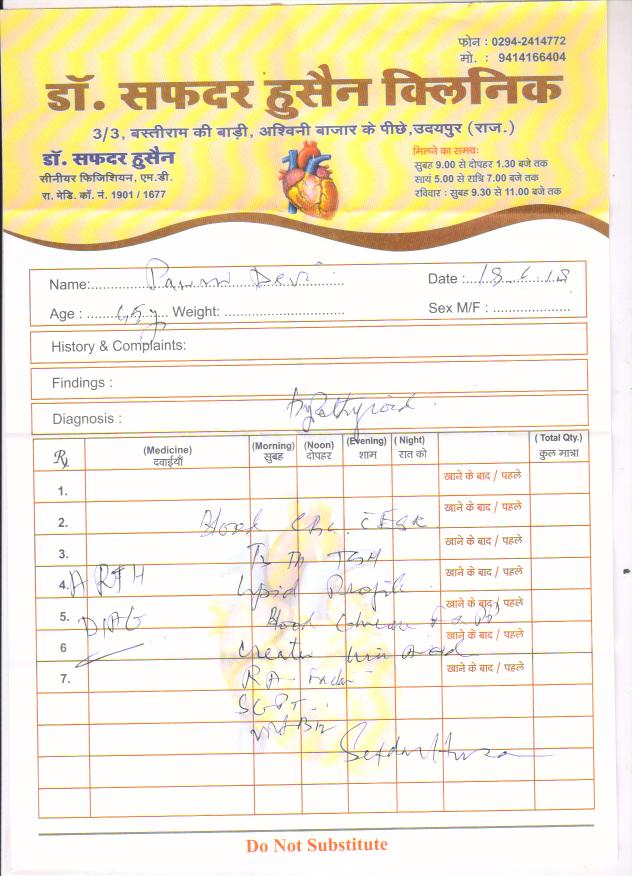 फोन : 0294-2414772
मो. : 9414166404
डॉ. सफदर हुसैन क्लिनिक
3/3, बस्तीराम की बाड़ी, अश्विनी बाजार के पीछे,उदयपुर (राज.)
डॉ. सफदर हुसैन
सीनीयर फिजिशियन, एम.डी.
रा. मेडि. कॉं. नं. 1901 / 1677
मिलने का समयः
सुबह 9.00 से दोपहर 1.30 बजे तक
सायं 5.00 से रात्रि 7.00 बजे तक
रविवार : सुबह 9.30 से 11.00 बजे तक
Name: Devi Date :
Age : 65y Weight: Sex M/F :
History & Complaints:
Findings :
Diagnosis : hypothyroid
Rx (Medicine) (Morning) (Noon) (Evening) (Night) (Total Qty.)
दवाईयाँ सुबह दोपहर शाम रात को कुल मात्रा
1. खाने के बाद / पहले
2. Blood CBC ESR खाने के बाद / पहले
3. T3 T4 TSH खाने के बाद / पहले
4. ARTH Lipid Profile खाने के बाद / पहले
5. DIAG Blood खाने के बाद / पहले
6 Uric Acid खाने के बाद / पहले
7. RA खाने के बाद / पहले
SGPT
Vit B12
Do Not Substitute